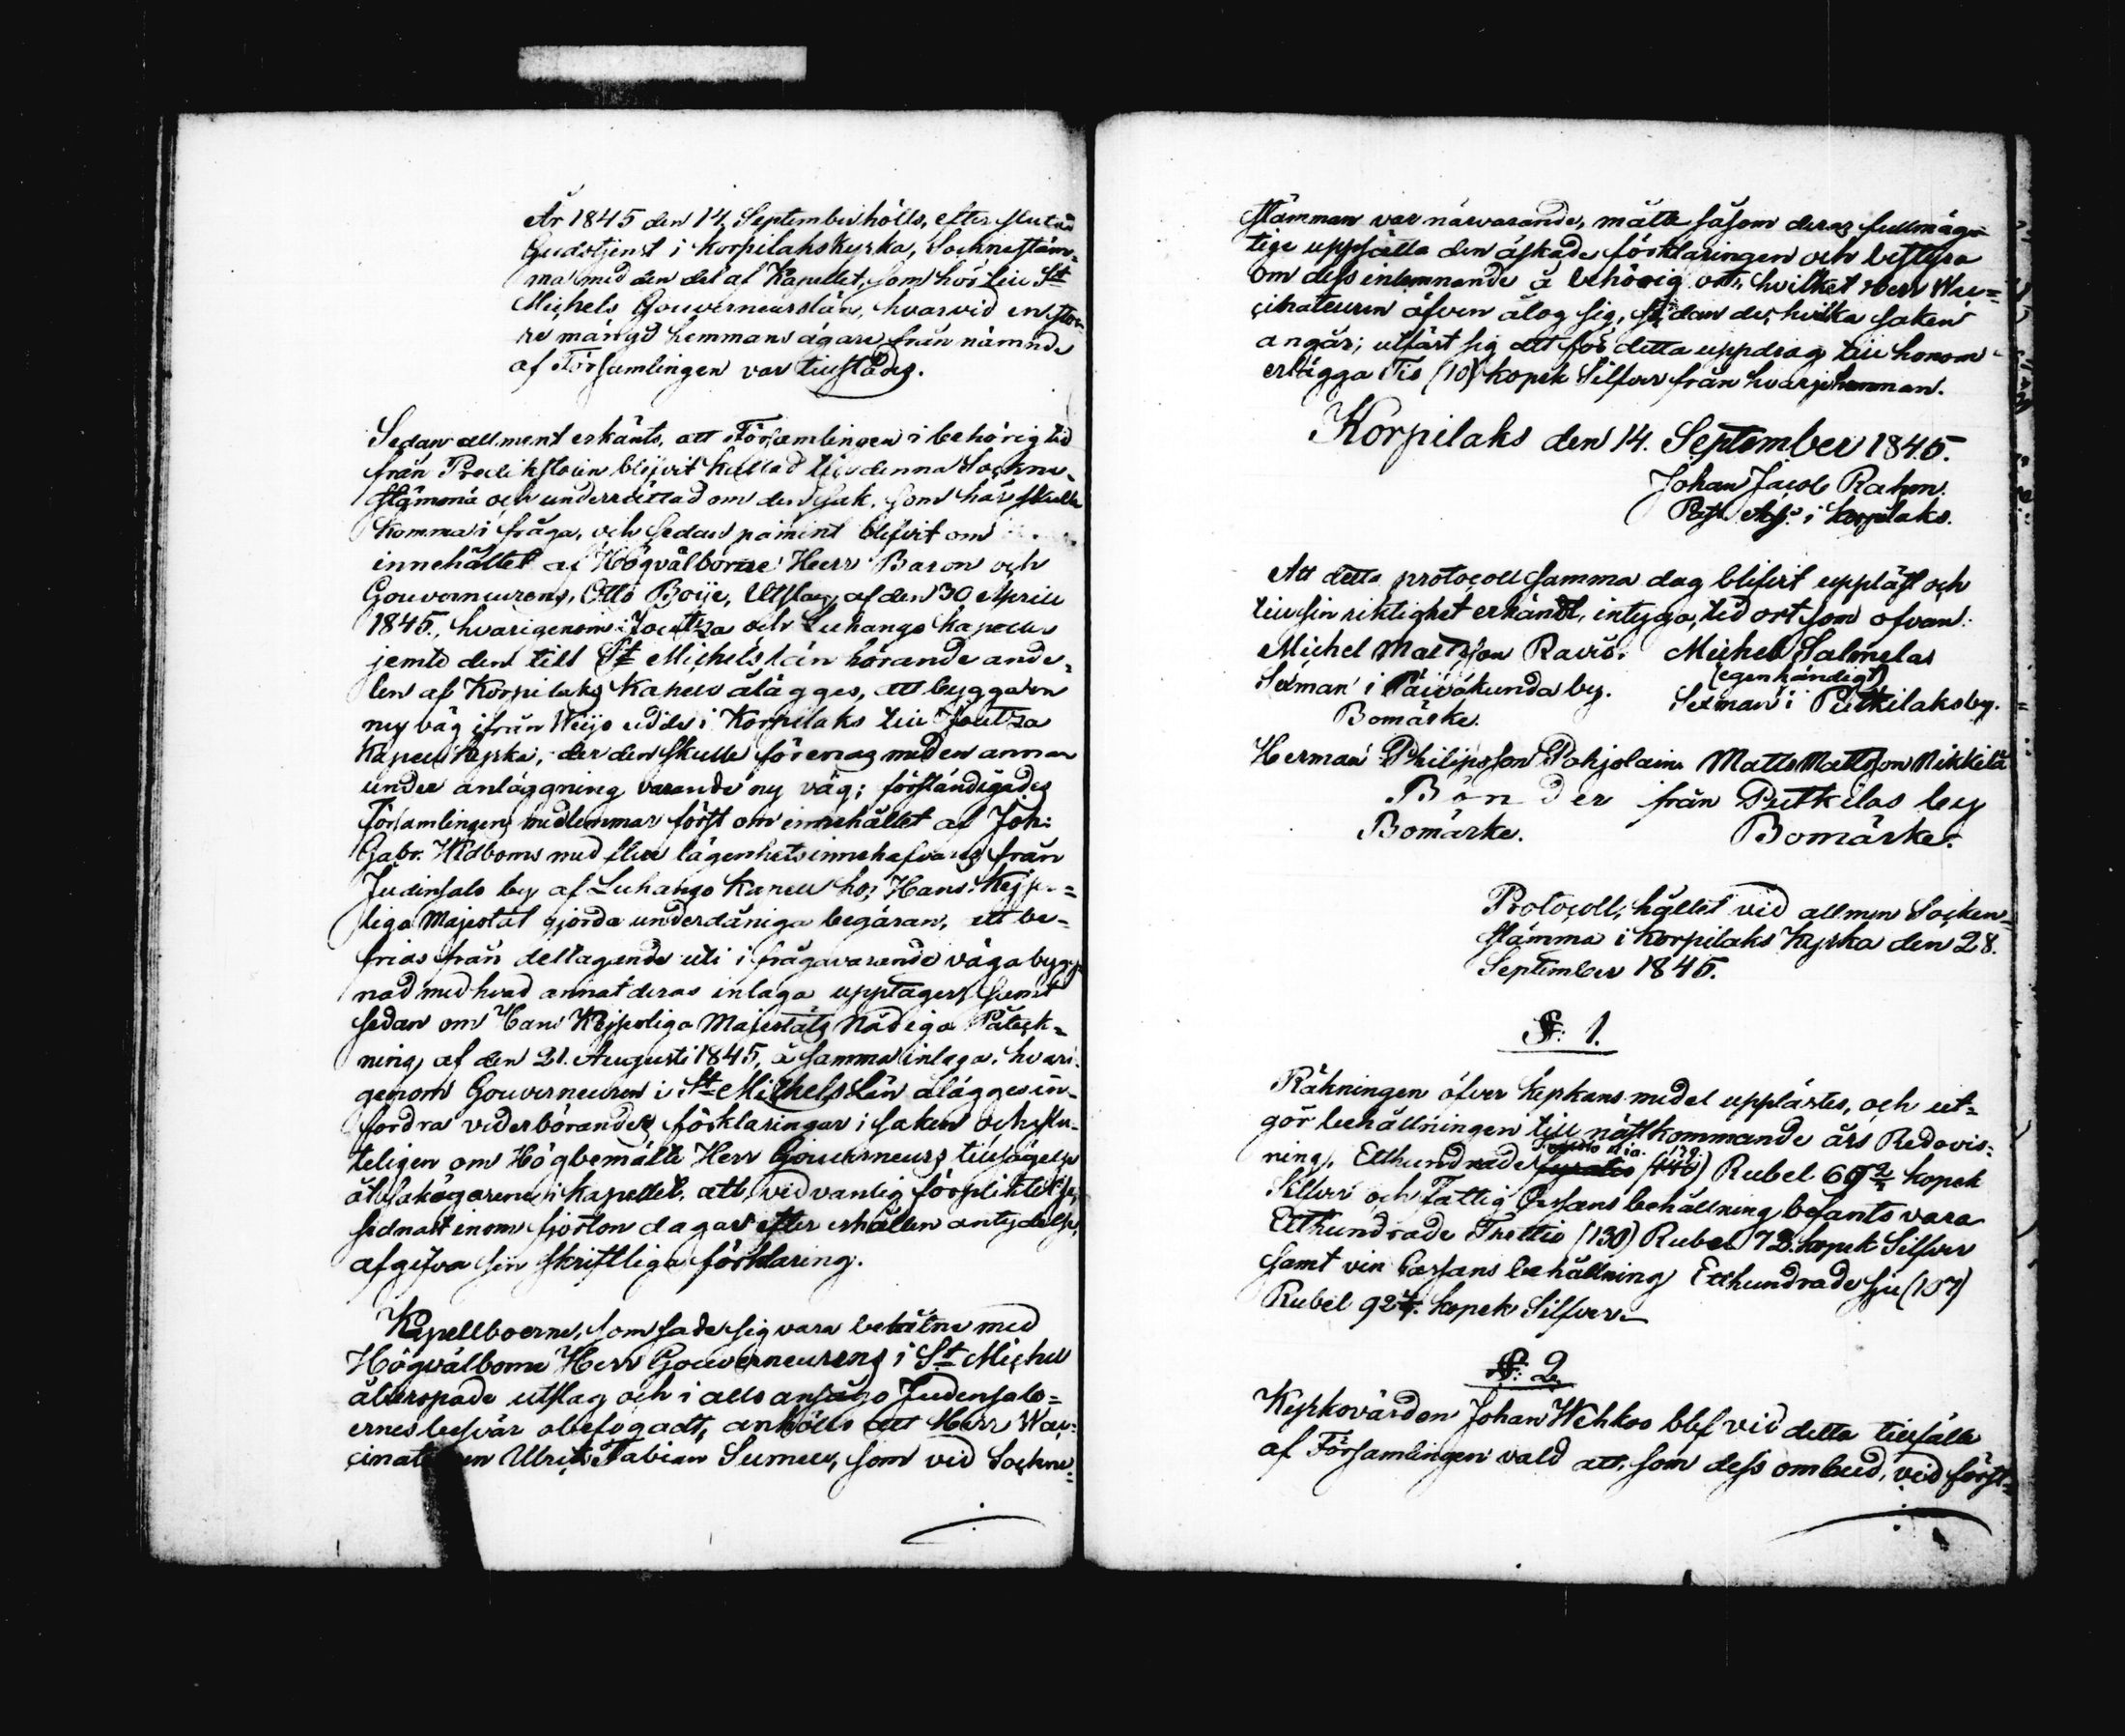 År 1845 den 14 September hölls, efter slutad
Gudstjenst i Korpilaks kyrka, Sockenstäm=
ma med den del af Kapellet, som hör till St
Michels Gouverneurslän, hvarvid en stör=
re mängd hemmans ägare från nämnde
af Församlingen var tillstädes.
Sedan allment erkänts, att Församlingen i behörig tid
från Predikstolen blifvit kallad till denna Sockne=
stämma och underrättad om den sak, som här skulle
komma i fråga, och sedan påmint blifvit om
innehållet af Högvälborne Herr Baron och
Gouverneurens, Otto Boije, Utslag af den 30 April
1845, hvarigenom Joutza och Luhango kapeller
jemte den till St Michels län hörande ande=
len af Korpilaks Kapell ålägges, att bygga en
ny väg ifrån udde i Korpilaks till Joutza
Kapell kyrka, der den skulle förenas med en annan
under anläggning varande ny väg; förständigades
Församlingens medlemmar först om innehållet af Joh:
Gabr. Widboms med flere lägenhets innehafvares från
Judinsalo by af Luhango Kapell hos Hans Kejser=
liga Majestät gjorda underdåniga begäran, att be=
frias från deltagande uti i frågavarande vägabygg=
nad med hvad annat deras inlaga upptager, samt
sedan om Hans Kejserliga Majestäts Nådiga Påteck=
ning af den 21. Augusti 1845, å samma inlaga, hvari=
genom Gouverneuren i St Michels Län ålägges in=
fordra vederbörandes förklaringar i saken och slu=
teligen om Högbemälte Herr Gouverneurs tillsägelse
åt sakägarene i kapellet, att, vid vanlig förpliktelse,
sednast inom fjorton dagar efter erhållen antydelse,
afgifva sin skriftliga förklaring.
Kapellboerne, som sade sig vara belåtne med
Högvälborne Herr Gouverneurens i St Michel
åberopade utslag och i allo ansågo Judinsalo=
ernes besvär obefogadt, anhöllo att Herr Wac=
cinateuren Ulrik Fabian Sumell, som vid Sockne=
stämman var närvarande, måtte såsom deras fullmäg=
tige uppsätta den äskade förklaringen och bestyra
om dess inlemnande å behörig ort, hvilket Herr Wac=
cinateuren äfven åtog sig, sedan de, hvilka saken
angår, utfäst sig att för detta uppdrag till honom
erlägga Tio (10) kopek Silfver från hvarje hemman.
Korpilaks den 14. September 1845.
Johan Jacob Rahm.
Past. Adj: i Korpilaks.
Att detta protocoll samma dag blifvit uppläst och
till sin riktighet erkändt, intyga, tid ort som ofvan.
Michel Mattsson Raviò. Michel Salmelas
(egenhändigt)
Sexman i Päivökunda by. Sexman i Putkilaks by.
Bomärke.
Herman Philipsson Pohjolain Matts Mattsson Nikkilä
Bönder från Putkilas by
Bomärke. Bomärke.
Protocoll, hållet vid allmen Socken=
stämma i Korpilaks Kyrka den 28.
September 1845.
§: 1.
Räkningen öfver kyrkans medel upplästes, och ut=
gör behållningen till nästkommande års Redovis=
ning, Etthundrade (146) Rubel 69 2/7 kopek
Silfver och Fattig Cassans behållning befants vara
Etthundrade Trettio (130) Rubel 72. kopek Silfver
samt vin Cassans behållning Etthundrade sju (107)
Rubel 92 4/7. kopek Silfver.
§: 2.
Kyrkovärden Johan Wehkoo blef vid detta tillfälle
af Församlingen vald att, som dess ombud, vid först=